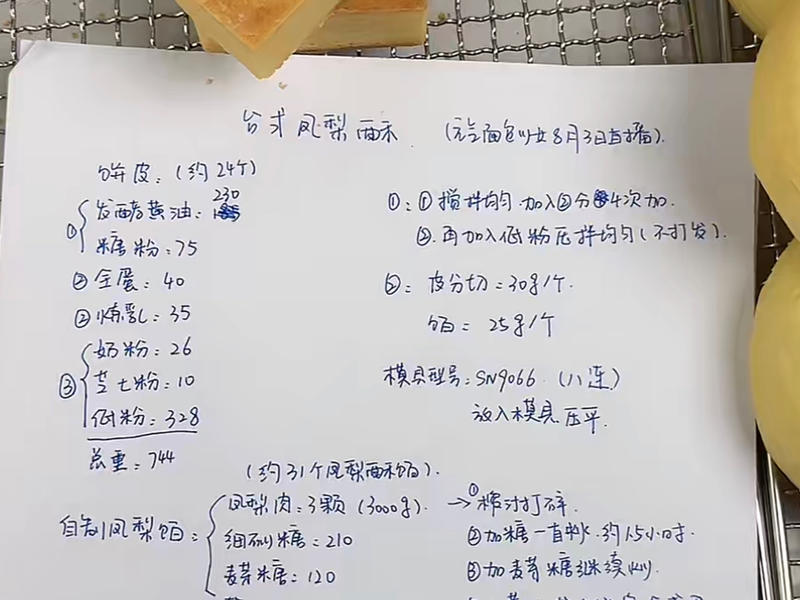 台式凤梨酥 (完全面包少女8月3日直播).
饼皮: (约24个)
① 发酵黄油: 230
糖粉: 75
② 全蛋: 40
② 炼乳: 35
③ 奶粉: 26
芝士粉: 10
低粉: 328
总重: 744
①: ① 搅拌均匀.加入②分4次加.
②. 再加入低粉压拌均匀(不打发).
②: 皮分切=30g/个.
馅= 25g/个
模具型号: SN9066 (八连)
放入模具压平.
(约31个凤梨酥馅).
自制凤梨馅: 凤梨肉: 3颗 (3000g). → ① 榨汁打碎.
细砂糖: 210 ② 加糖一直炒.约1.5小时.
麦芽糖: 120 ③ 加麦芽糖继续炒.